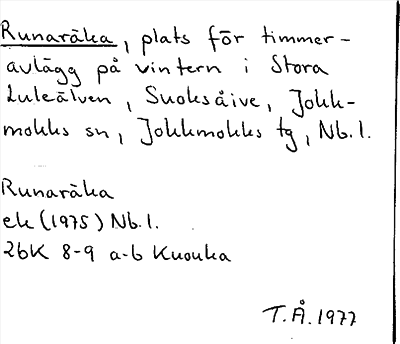 Runaräka, plats för timmer-
avlägg på vintern i Stora
Luleälven, Suoksåive, Jokk-
mokks sn, Jokkmokks tg, Nb. l.
Runaräka
ek (1975) Nb. l.
26K 8-9 a-b Kuouka
T.Å. 1977